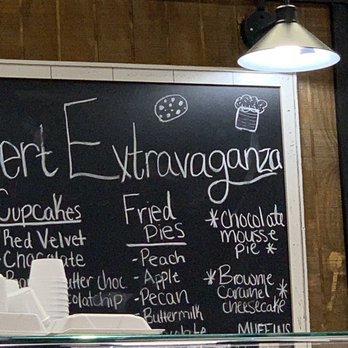 ert Extravaganza
Cupcakes
Red Velvet
- Chocolate
utter choc
olatchip
Fried
Pies
- Peach
- Apple
- Pecan
- Buttermilk
*chocolate
mousse
pie *
*Brownie
Caramel *
cheesecake
MUFFINS